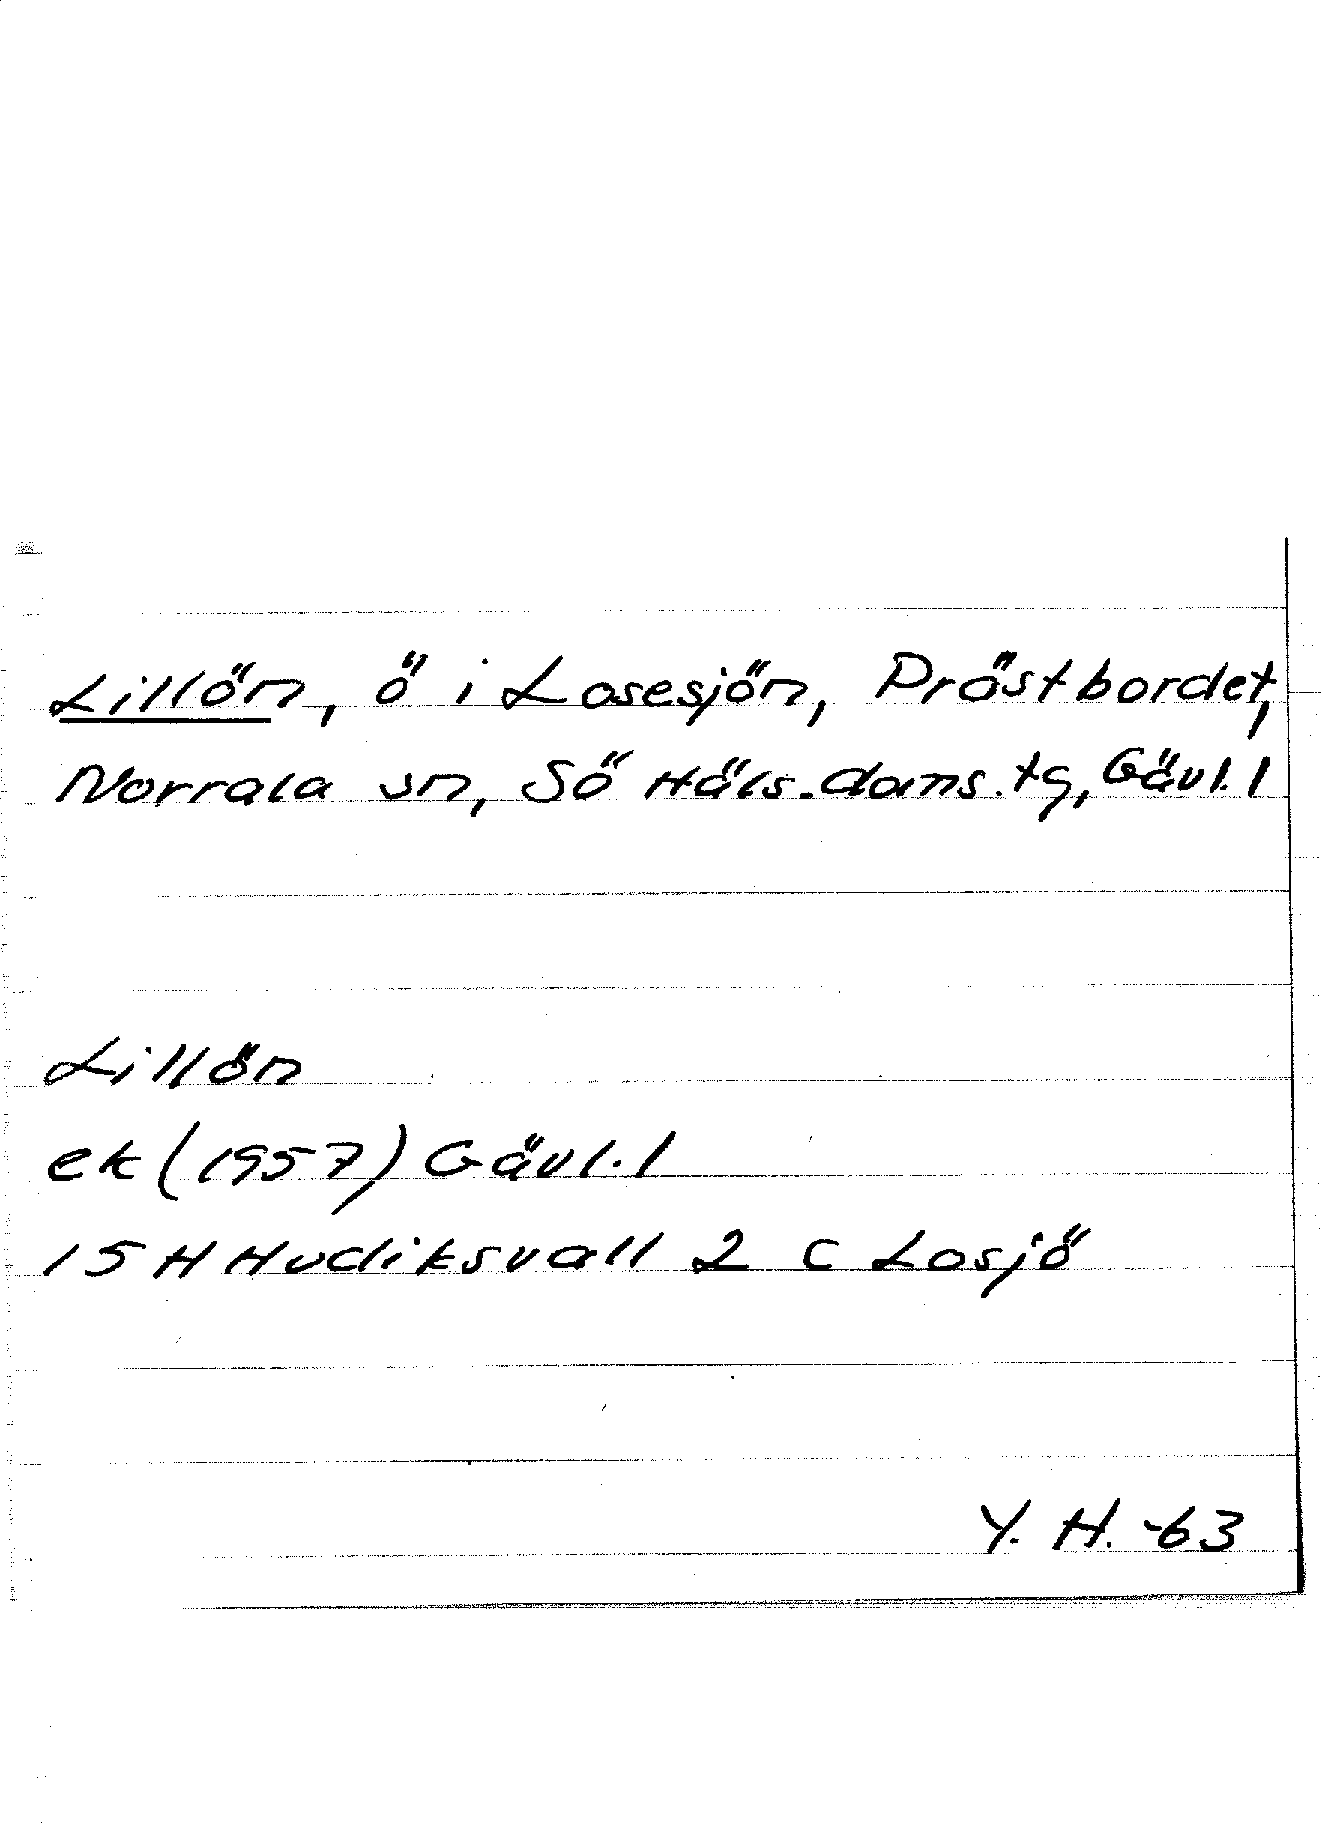 Lillön, ö i Losesjön, Prästbordet,
Norrala sn, Sö Häls. doms. tg, Gävl. l
Lillön
ek (1957) Gävl. l
15 H Hudiksvall 2 C Losjö
Y. H. -63